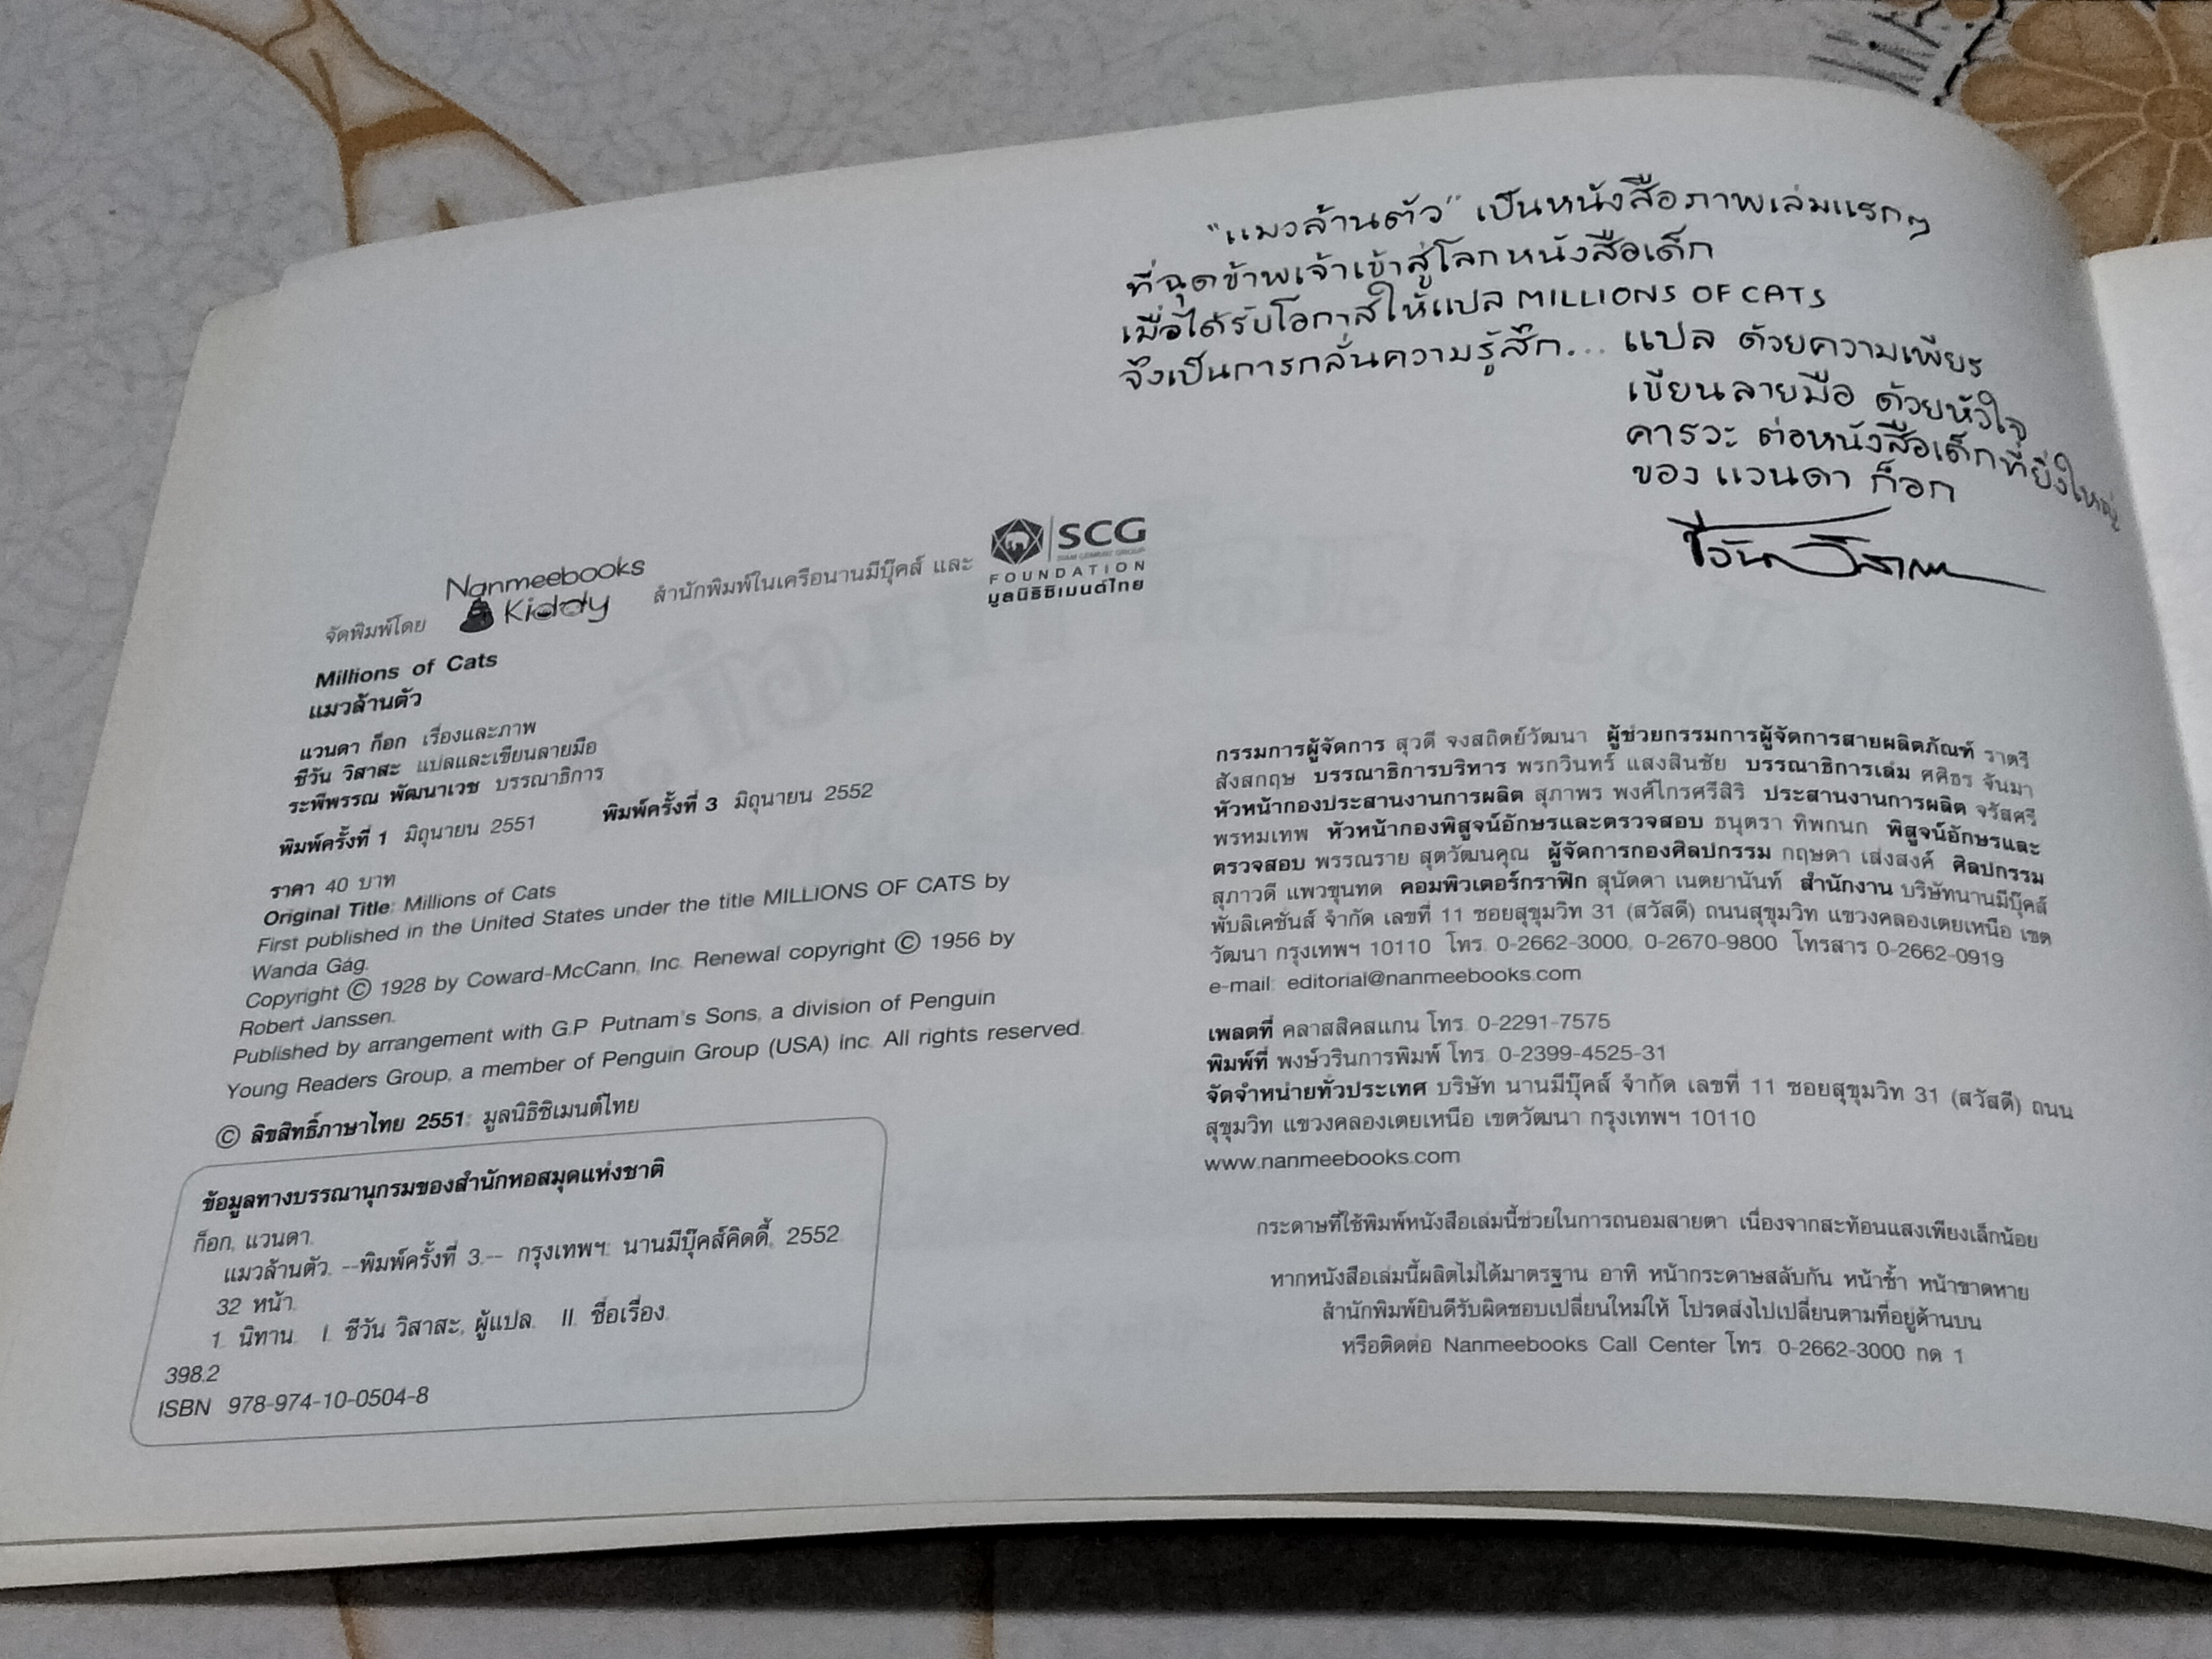 "แมวล้านตัว" เป็นหนังสือภาพเล่มแรกๆ
ที่ฉุดข้าพเจ้าเข้าสู่โลกหนังสือเด็ก
เมื่อได้รับโอกาสให้แปล MILLIONS OF CATS
จึงเป็นการกลั่นความรู้สึก... แปล ด้วยความเพียร
เขียนลายมือ ด้วยหัวใจ
คารวะ ต่อหนังสือเด็กที่ยิ่งใหญ่
ของ แวนดา ก็อก
ชีวัน วิสาสะ
จัดพิมพ์โดย Nanmeebooks Kiddy สำนักพิมพ์ในเครือนานมีบุ๊คส์ และ SCG
SIAM CEMENT GROUP
FOUNDATION
มูลนิธิซิเมนต์ไทย
Millions of Cats
แมวล้านตัว
แวนดา ก็อก เรื่องและภาพ
ชีวัน วิสาสะ แปลและเขียนลายมือ
ระพีพรรณ พัฒนาเวช บรรณาธิการ
พิมพ์ครั้งที่ 1 มิถุนายน 2551 พิมพ์ครั้งที่ 3 มิถุนายน 2552
ราคา 40 บาท
Original Title: Millions of Cats
First published in the United States under the title MILLIONS OF CATS by
Wanda Gág.
Copyright © 1928 by Coward-McCann, Inc. Renewal copyright © 1956 by
Robert Janssen.
Published by arrangement with G.P. Putnam's Sons, a division of Penguin
Young Readers Group, a member of Penguin Group (USA) Inc. All rights reserved.
© ลิขสิทธิ์ภาษาไทย 2551: มูลนิธิซิเมนต์ไทย
ข้อมูลทางบรรณานุกรมของสำนักหอสมุดแห่งชาติ
ก็อก, แวนดา.
แมวล้านตัว. --พิมพ์ครั้งที่ 3.-- กรุงเทพฯ: นานมีบุ๊คส์คิดดี้, 2552.
32 หน้า.
1. นิทาน. I. ชีวัน วิสาสะ, ผู้แปล. II. ชื่อเรื่อง.
398.2
ISBN 978-974-10-0504-8
กรรมการผู้จัดการ สุวดี จงสถิตย์วัฒนา ผู้ช่วยกรรมการผู้จัดการสายผลิตภัณฑ์ ราตรี
สังสกฤษ บรรณาธิการบริหาร พรกวินทร์ แสงสินชัย บรรณาธิการเล่ม ศศิธร จันมา
หัวหน้ากองประสานงานการผลิต สุภาพร พงศ์ไกรศรีสิริ ประสานงานการผลิต จรัสศรี
พรหมเทพ หัวหน้ากองพิสูจน์อักษรและตรวจสอบ ธนุตรา ทิพกนก พิสูจน์อักษรและ
ตรวจสอบ พรรณราย สุตวัฒนคุณ ผู้จัดการกองศิลปกรรม กฤษดา เส่งสงค์ ศิลปกรรม
สุภาวดี แพวขุนทด คอมพิวเตอร์กราฟิก สุนัดดา เนตยานันท์ สำนักงาน บริษัทนานมีบุ๊คส์
พับลิเคชั่นส์ จำกัด เลขที่ 11 ซอยสุขุมวิท 31 (สวัสดี) ถนนสุขุมวิท แขวงคลองเตยเหนือ เขต
วัฒนา กรุงเทพฯ 10110 โทร. 0-2662-3000, 0-2670-9800 โทรสาร 0-2662-0919
e-mail: editorial@nanmeebooks.com
เพลตที่ คลาสสิคสแกน โทร. 0-2291-7575
พิมพ์ที่ พงษ์วรินการพิมพ์ โทร. 0-2399-4525-31
จัดจำหน่ายทั่วประเทศ บริษัท นานมีบุ๊คส์ จำกัด เลขที่ 11 ซอยสุขุมวิท 31 (สวัสดี) ถนน
สุขุมวิท แขวงคลองเตยเหนือ เขตวัฒนา กรุงเทพฯ 10110
www.nanmeebooks.com
กระดาษที่ใช้พิมพ์หนังสือเล่มนี้ช่วยในการถนอมสายตา เนื่องจากสะท้อนแสงเพียงเล็กน้อย
หากหนังสือเล่มนี้ผลิตไม่ได้มาตรฐาน อาทิ หน้ากระดาษสลับกัน หน้าซ้ำ หน้าขาดหาย
สำนักพิมพ์ยินดีรับผิดชอบเปลี่ยนใหม่ให้ โปรดส่งไปเปลี่ยนตามที่อยู่ด้านบน
หรือติดต่อ Nanmeebooks Call Center โทร. 0-2662-3000 กด 1